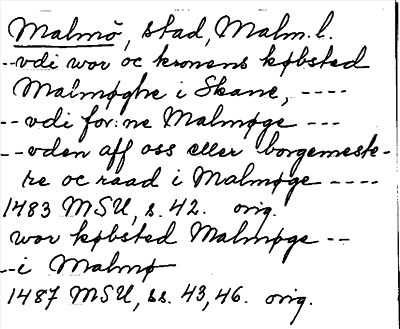 Malmö, stad, Malm. l.
-- vdi wor oc kronens købsted
Malmøghe i Skane, ----
-- vdi for:ne Malmøge ---
-- vden aff oss eller borgemeste-
re oc raad i Malmøge ----
1483 MSU, s. 42. orig.
wor købsted Malmøge --
-- i Malmø
1487 MSU, ss. 43, 46. orig.